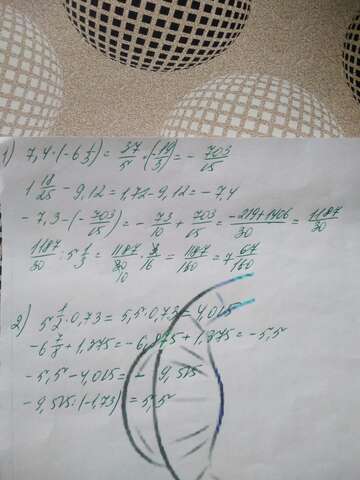 1) 7,4·(-6 1/3) = 37/5 · (-19/3) = - 703/15
1 18/25 - 9,12 = 1,72 - 9,12 = -7,4
- 7,3 - (- 703/15) = - 73/10 + 703/15 = -219+1406/30 = 1187/30
1187/30 : 5 1/3 = 1187/30 · 3/16 = 1187/160 = 7 67/160
10
2) 5 1/2 · 0,73 = 5,5·0,73 = 4,015
-6 7/8 + 1,375 = -6,875 + 1,375 = -5,5
-5,5 - 4,015 = - 9,515
-9,515 : (-1,73) = 5,5